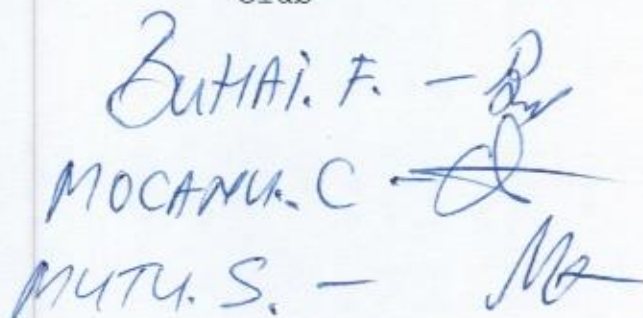 Club
BUHAI. F. -
MOCANU. C -
MUTU. S. -